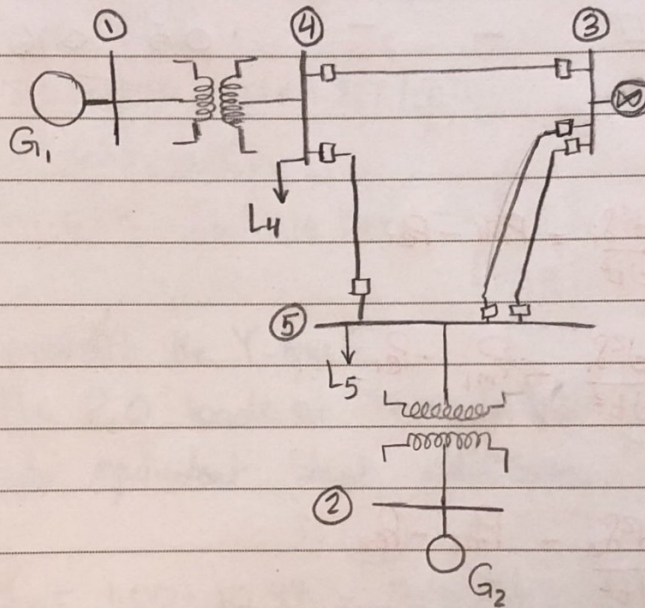 ① ④ ③
G₁
L₄
⑤
L₅
②
G₂